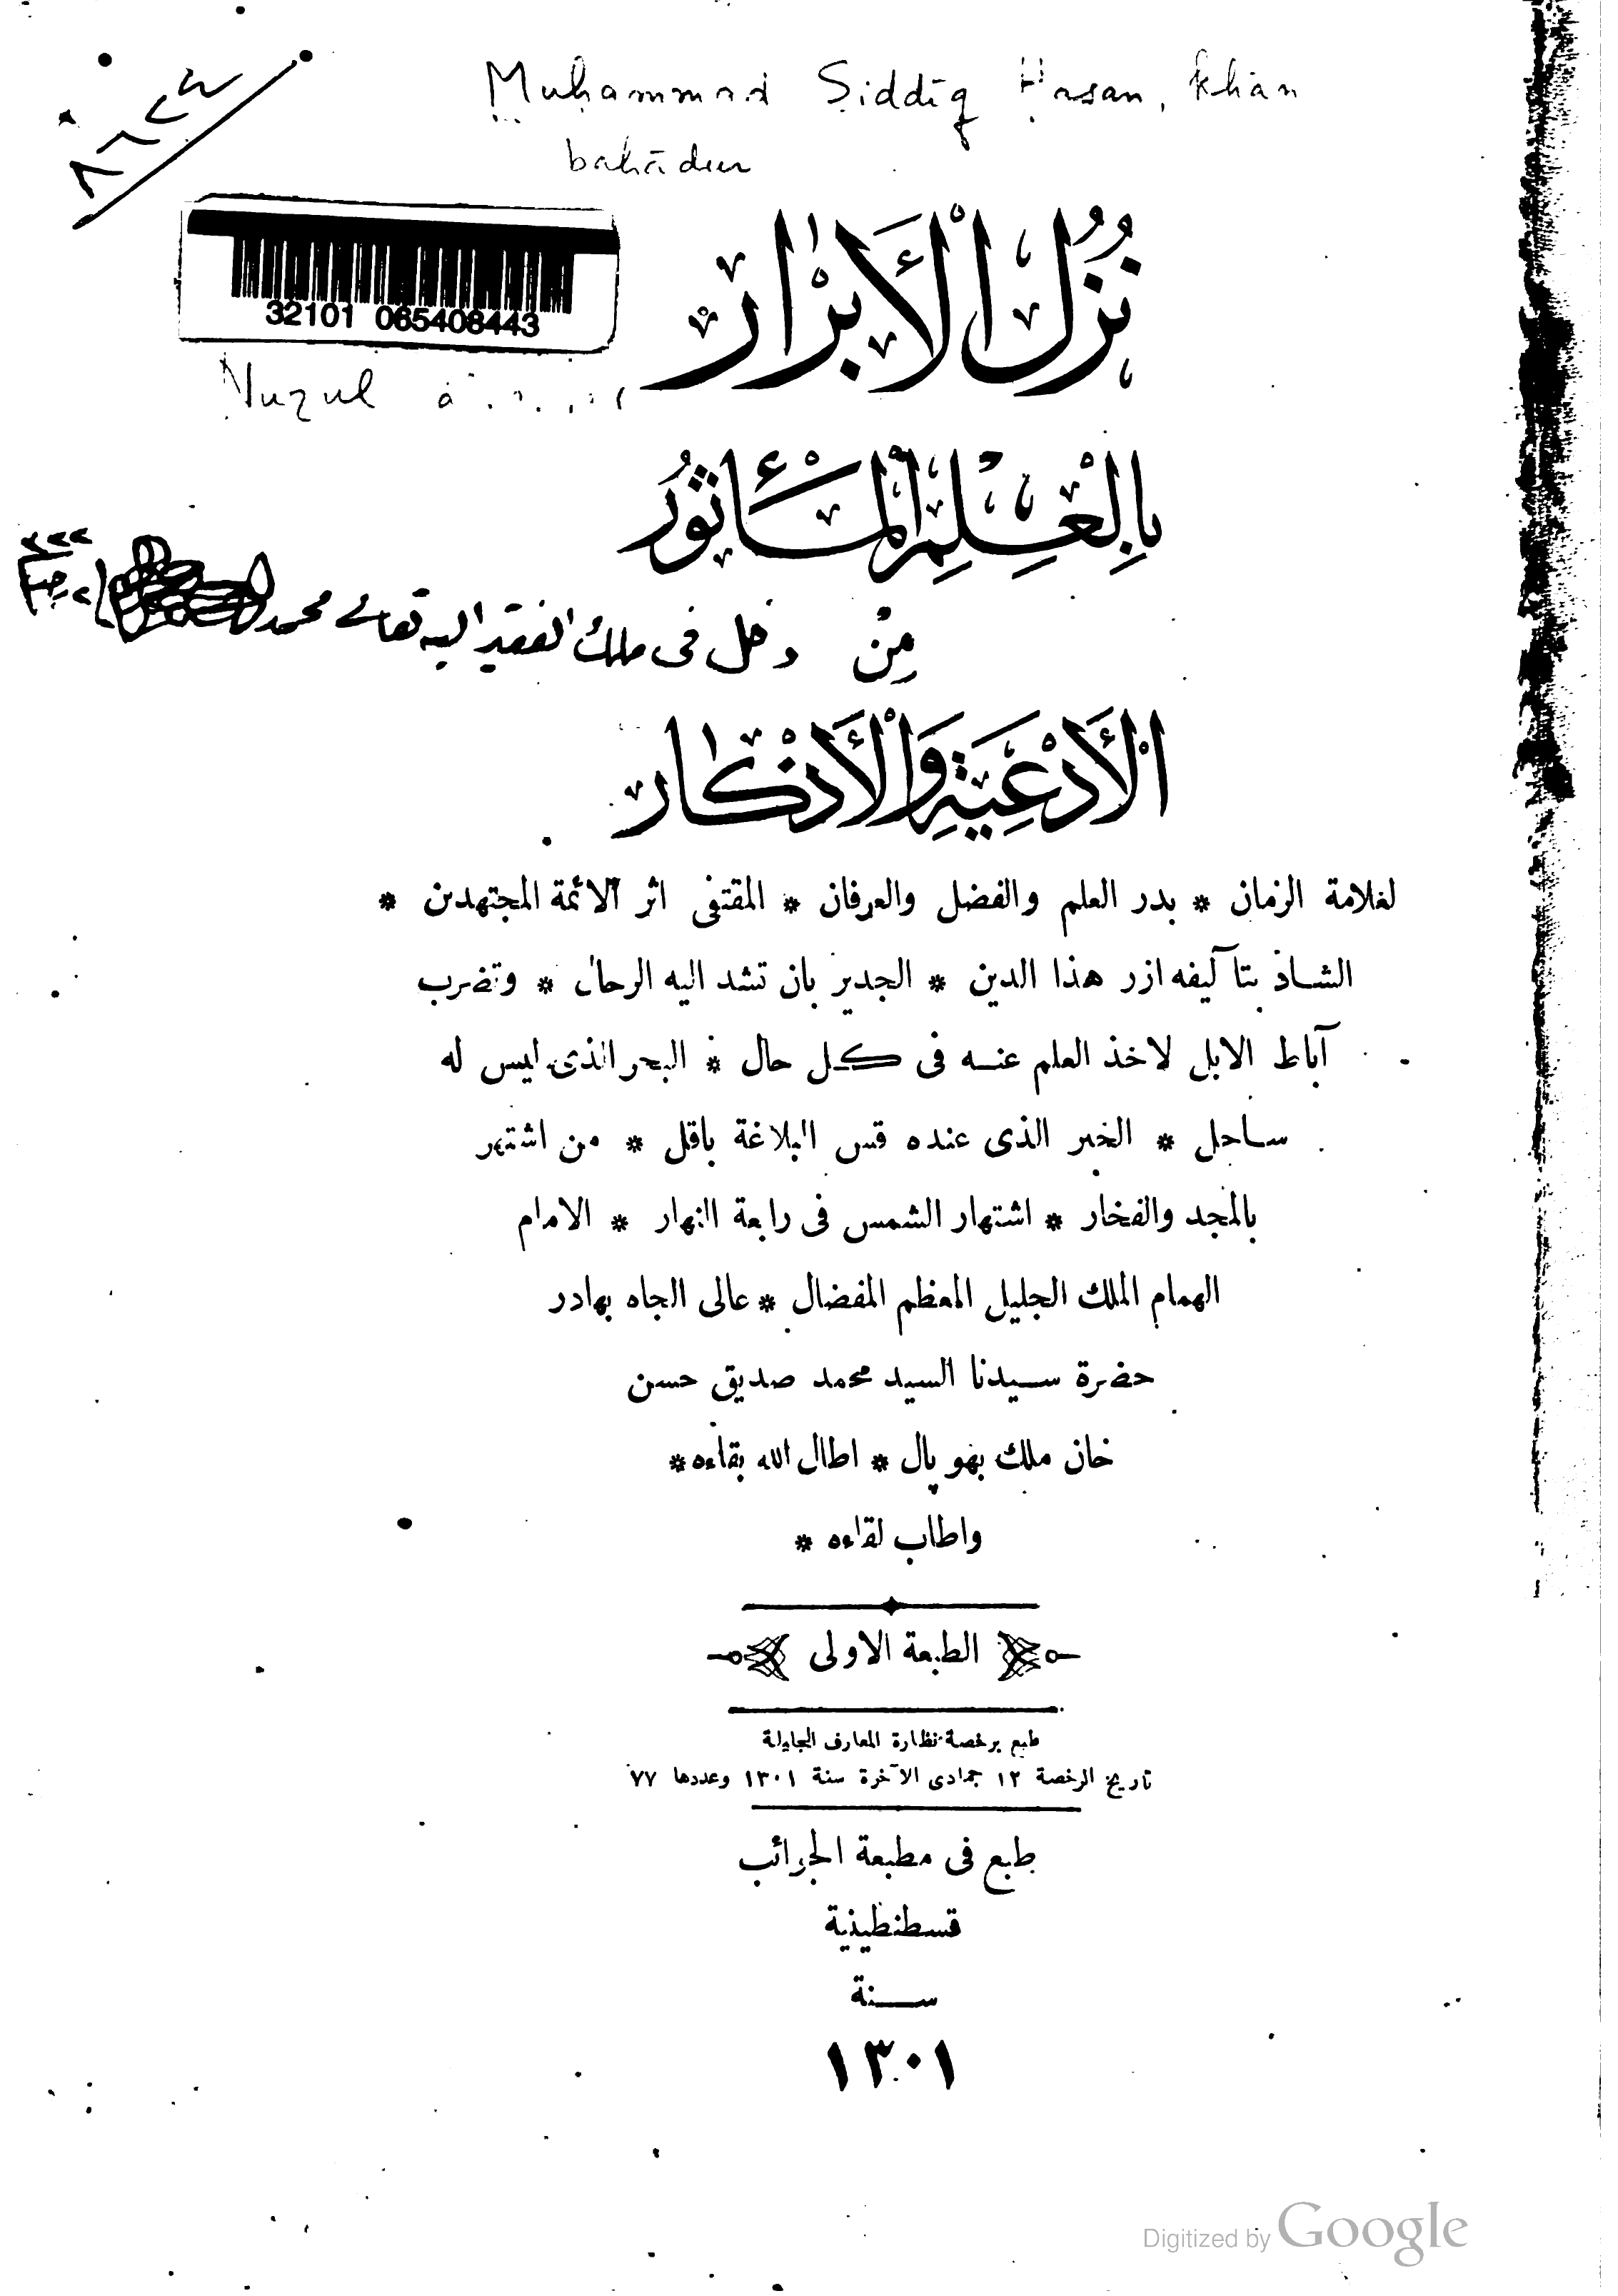 Muḥammad Ṣiddīq Ḥasan, Khān
bahādur
٨٦٢٣
نُزُلُ الْأَبْرَار
32101 065408443
Nuzul
بِالْعِلْمِ الْمَأْثُورِ
مِنَ
دخل فى ملك الفقير اليه تعالى محمد
الْأَدْعِيَةِ وَالْأَذْكَار
لعلامة الزمان * بدر العلم والفضل والعرفان * المقتفى اثر الائمة المجتهدين *
الشاذ بتآليفه ازر هذا الدين * الجدير بان تشد اليه الرحال * وتضرب
آباط الابل لاخذ العلم عنه فى كل حال * البحر الذى ليس له
ساحل * الخبر الذى عنده قس البلاغة باقل * من اشتهر
بالمجد والفخار * اشتهار الشمس فى رابعة النهار * الامام
الهمام الملك الجليل المعظم المفضال * عالى الجاه بهادر
حضرة سيدنا السيد محمد صديق حسن
خان ملك بهو پال * اطال الله بقاءه *
واطاب لقاءه *
الطبعة الاولى
طبع برخصة نظارة المعارف الجليلة
تاريخ الرخصة ١٢ جمادى الآخرة سنة ١٣٠١ وعددها ٧٧
طبع فى مطبعة الجوائب
قسطنطينية
سنة
١٣٠١
Digitized by Google